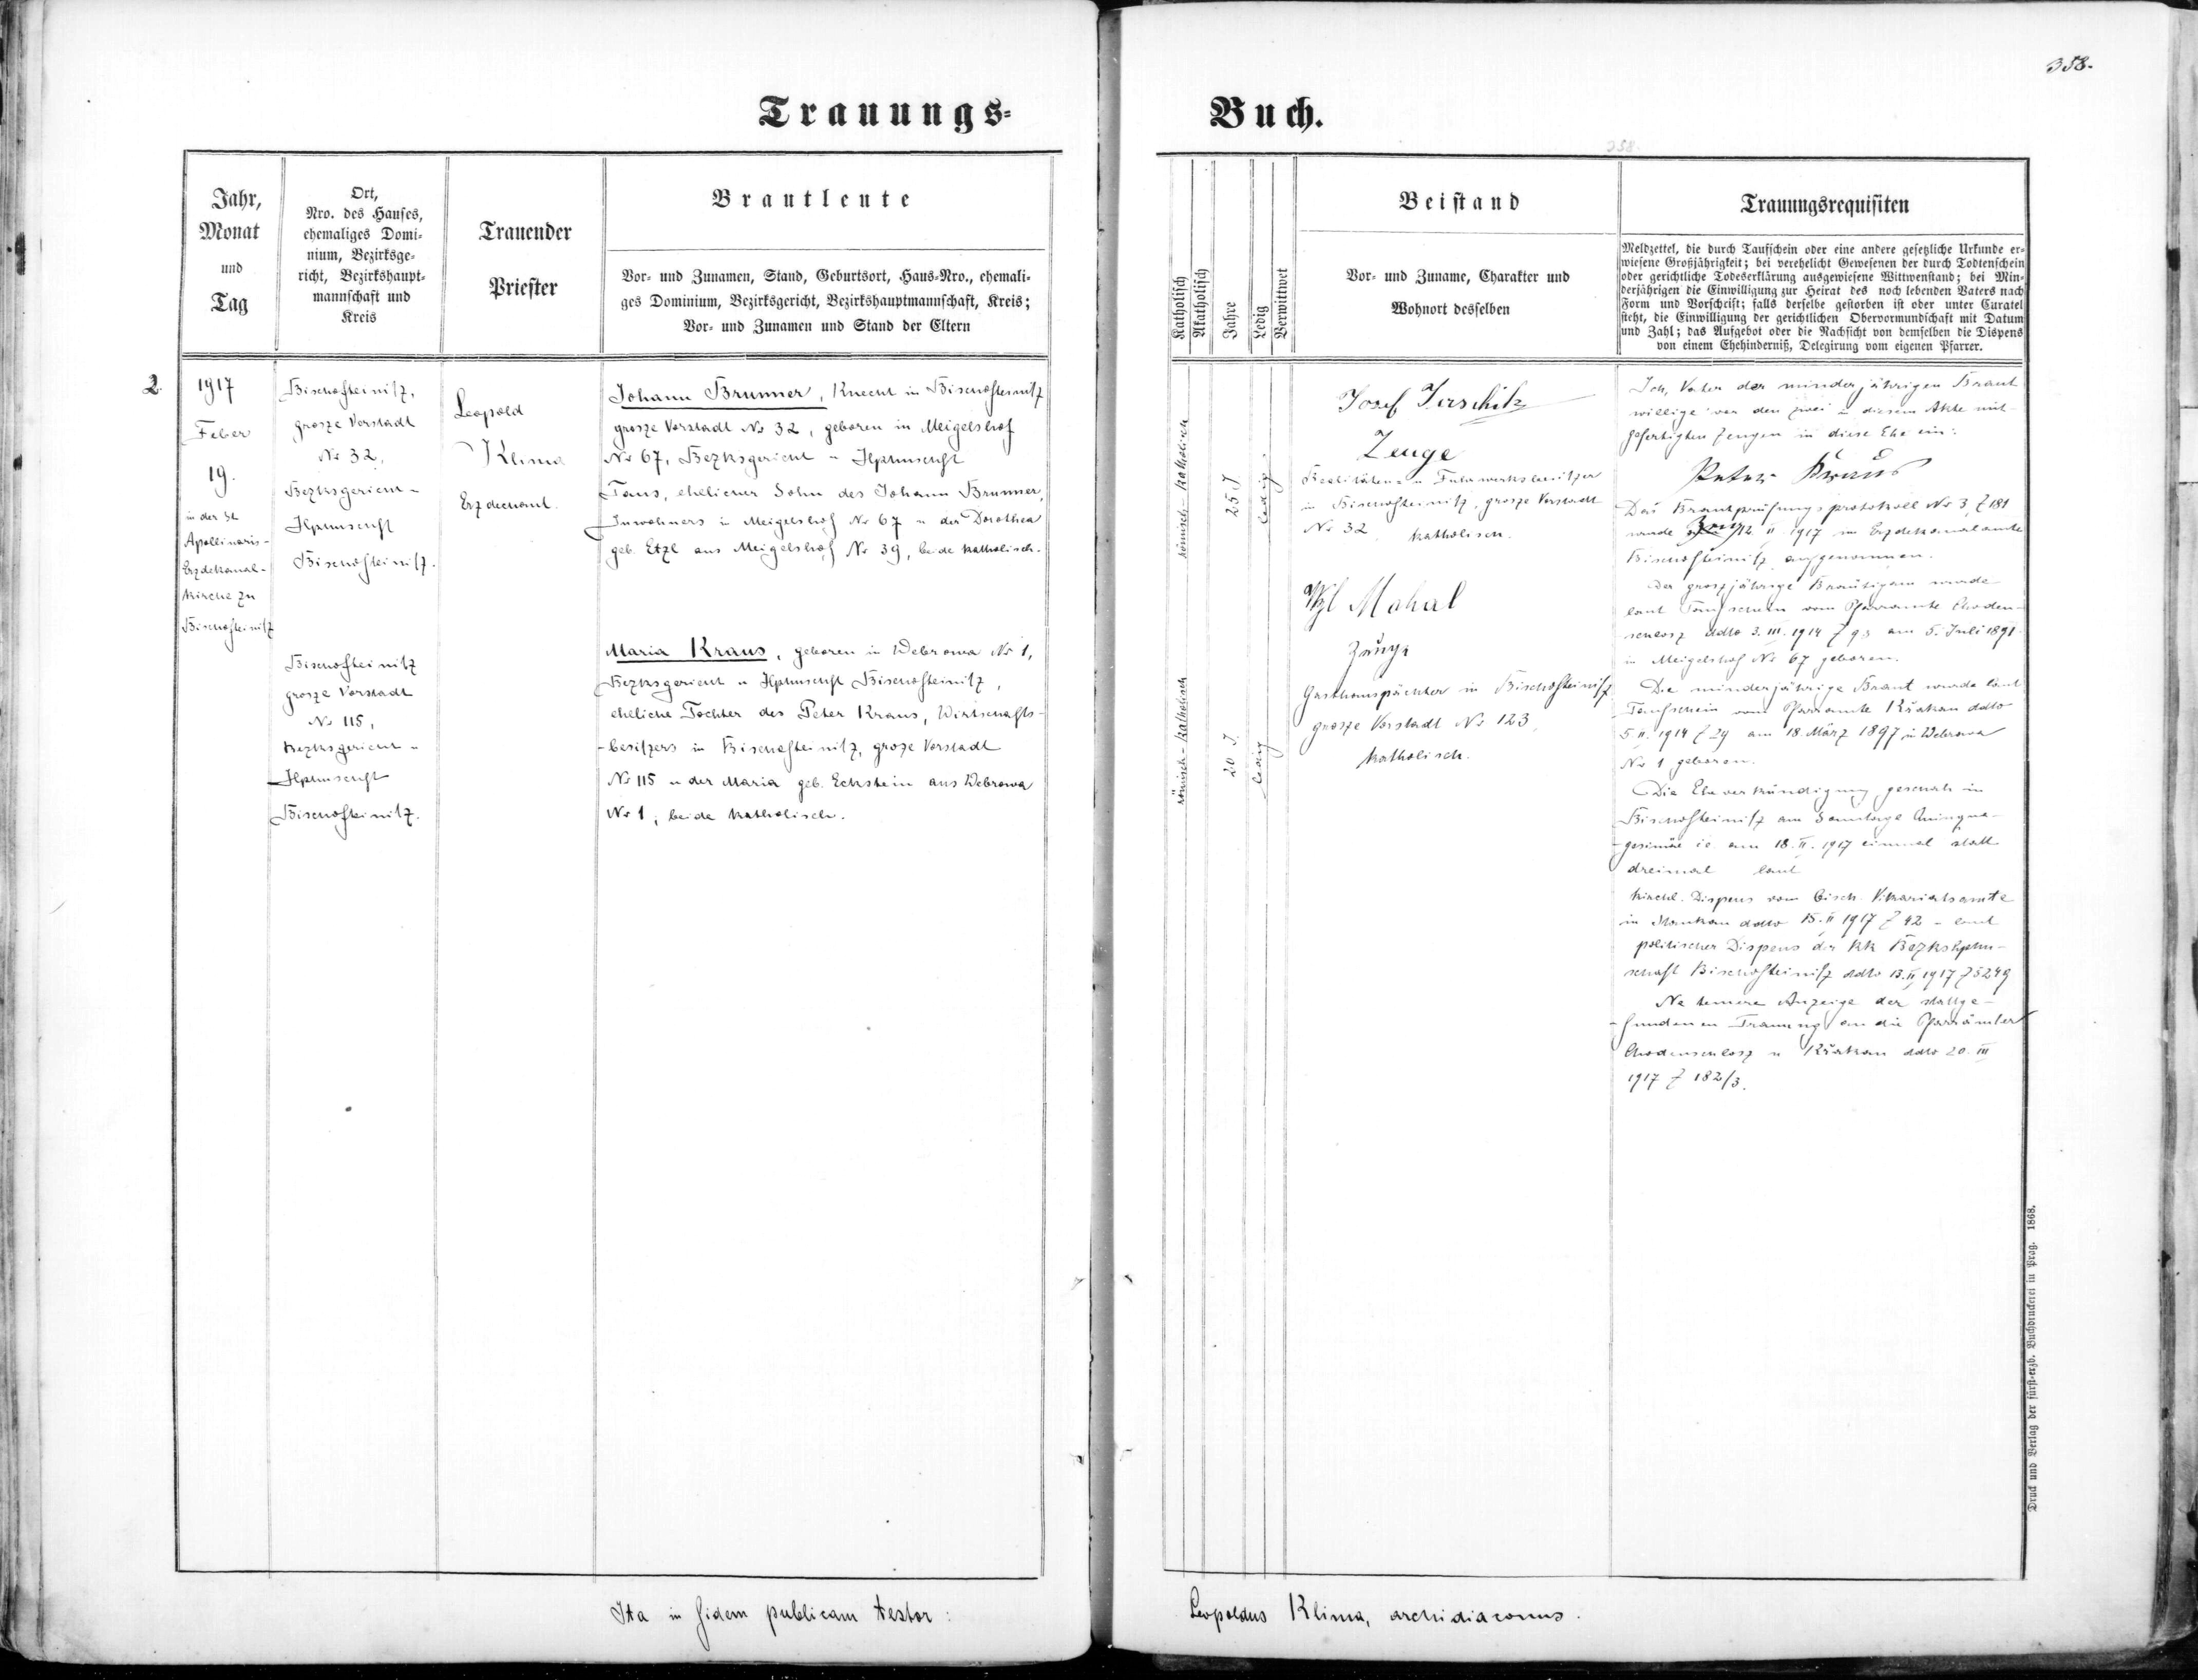 358.
Trauungs-
Buch.
358.
Jahr,
Monat
und
Tag
Ort,
Nro. des Hauses,
ehemaliges Domi-
nium, Bezirksge-
richt, Bezirkshaupt-
mannschaft und
Kreis
Trauender
Priester
Brautleute
Vor- und Zunamen, Stand, Geburtsort, Haus-Nro., ehemali-
ges Dominium, Bezirksgericht, Bezirkshauptmannschaft, Kreis;
Vor- und Zunamen und Stand der Eltern
Katholisch
Akatholisch
Jahre
Ledig
Verwittwet
Beistand
Vor- und Zuname, Charakter und
Wohnort desselben
Trauungsrequisiten
Meldzettel, die durch Taufschein oder eine andere gesetzliche Urkunde er-
wiesene Großjährigkeit; bei verehelicht Gewesenen der durch Todtenschein
oder gerichtliche Todeserklärung ausgewiesene Wittwenstand; bei Min-
derjährigen die Einwilligung zur Heirat des noch lebenden Vaters nach
Form und Vorschrift; falls derselbe gestorben ist oder unter Curatel
steht, die Einwilligung der gerichtlichen Obervormundschaft mit Datum
und Zahl; das Aufgebot oder die Nachsicht von demselben die Dispens
von einem Ehehinderniß, Delegirung vom eigenen Pfarrer.
2.
1917
Feber
19.
in der St
Apollinaris-
Erzdekanal-
kirche zu
Bischofteinitz
Bischofteinitz,
grosze Vorstadt
Nr 32,
Bezksgericht u
Hptmschft
Bischofteinitz.
Leopold
Klima
Erzdechant.
Johann Brunner, Knecht in Bischofteinitz
grosze Vorstadt Nr 32, geboren in Meigelshof
Nr 67, Bezksgericht u Hptmschft
Taus, ehelicher Sohn des Johann Brunner,
Inwohners in Meigelshof Nr 67 u der Dorothea
geb. Etzl aus Meigelshof Nr 39, beide katholisch.
Bischofteinitz
grosze Vorstadt
Nr 115,
Bezksgericht u
Hptmschft
Bischofteinitz.
Maria Kraus, geboren in Webrowa Nr 1,
Bezksgericht u Hptmschft Bischofteinitz,
eheliche Tochter des Peter Kraus, Wirtschafts-
-besitzers in Bischofteinitz, grosze Vorstadt
Nr 115 u der Maria geb. Eckstein aus Webrowa
Nr 1, beide katholisch.
römisch-katholisch
25 J
ledig.
römisch-katholisch
20 J.
ledig
Josef
Zeuge
Realitäten- u Fuhrwerksbesitzer
in Bischofteinitz, grosze Vorstadt
Nr 32 katholisch.
Mahal
Zeuge
Gasthauspächter in Bischofteinitz
grosze Vorstadt Nr 123,
katholisch.
Ich, Vater der minderjährigen Braut
willige vor den zwei in diesem Akte mit-
gefertigten Zeugen in diese Ehe ein:
Peter Kraus
Das Brautprüfungsprotokoll Nr 3, Z 181
wurde 12. II 1917 im Erzdekanalamte
Bischofteinitz aufgenommen.
Der groszjährige Bräutigam wurde
laut Taufschein vom Pfarramte Choden-
schlosz ddto 3. III. 1914 Z 93 am 5. Juli 1891
in Meigelshof Nr 67 geboren.
Die minderjährige Braut wurde laut
Taufschein vom Pfarramte Křakau ddto
5. II. 1914 Z 29 am 18. März 1897 in Webrowa
Nr 1 geboren.
Die Eheverkündigung geschah in
Bischofteinitz am Sonntage Quinqua-
-gesimä i.e. am 18. II. 1917 einmal statt
dreimal laut
kirchl. Dispens vom bisch. Vikariatsamte
in ddto 15. II 1917 Z 42 u laut
politischer Dispens der kk Bezkshptm-
schaft Bischofteinitz ddto 13. II 1917 Z 5249
Ne temere Anzeige der stattge-
-fundenen Trauung an die Pfarrämter
Chodenschlosz u Křakau ddto 20. III
1917 Z 182/3.
Druck und Verlag der fürst-erzb. Buchdruckerei in Prag. 1868.
Ita in fidem publicam testor:
Leopoldus Klima, archidiaconus.